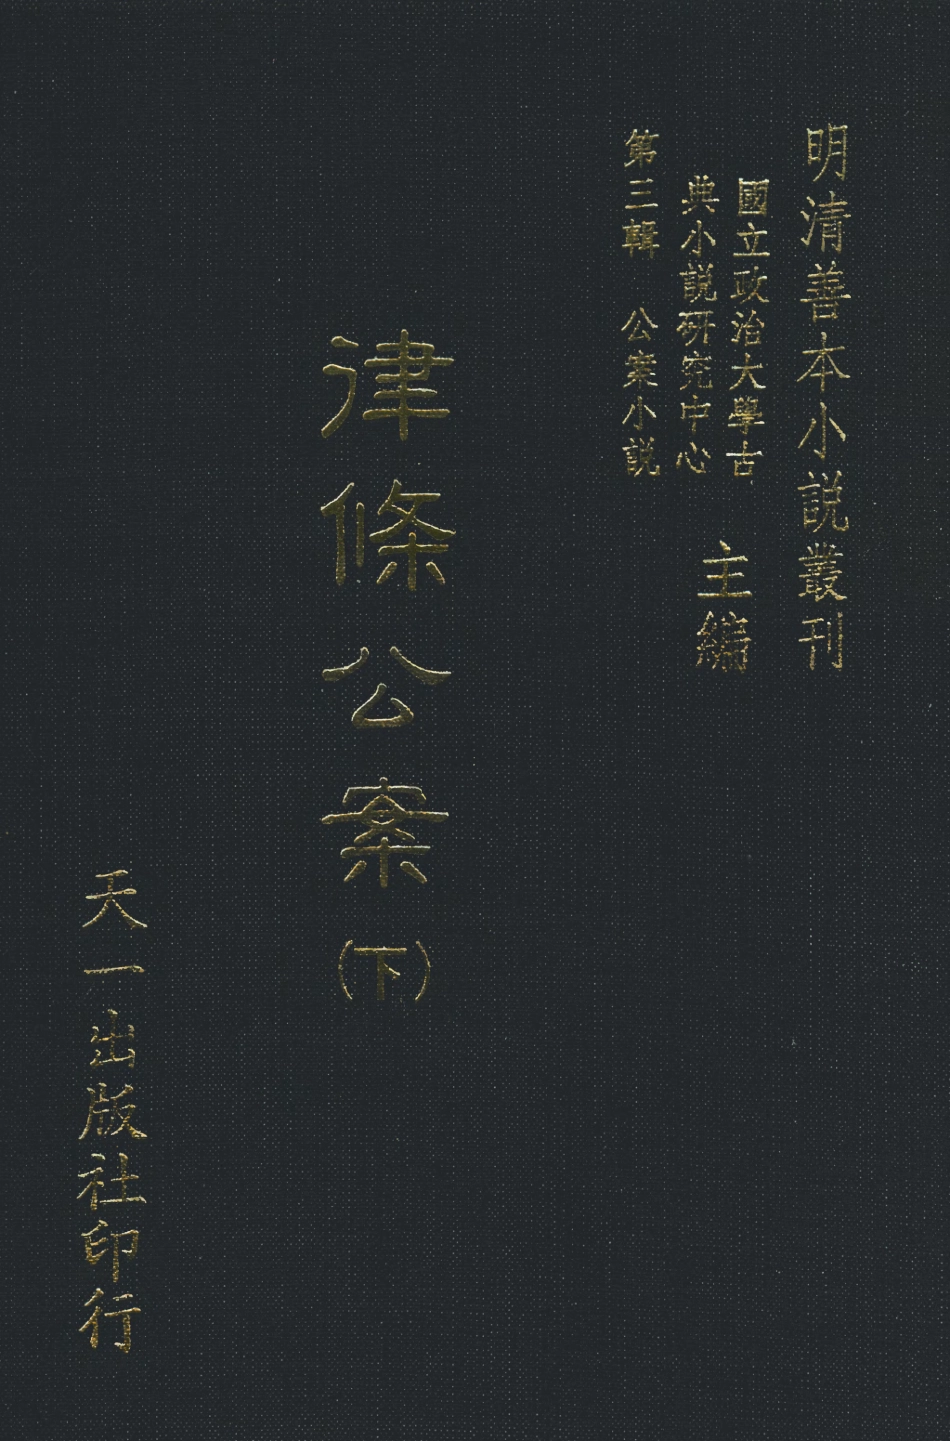 明清善本小説叢刊
國立政治大學古
典小説研究中心
主編
第三輯 公案小説
律條公案(下)
天一出版社印行